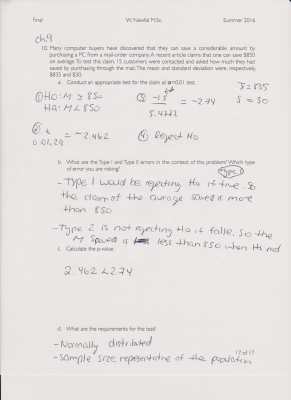 Final W. Nawful M.Sc. Summer 2016
ch.9
10. Many computer buyers have discovered that they can save a considerable amount by
purchasing a PC from a mail-order company. A recent article claims that one can save $850
on average. To test this claim, 15 customers were contacted and asked how much they had
saved by purchasing through the mail. The mean and standard deviation were, respectively,
$835 and $30.
a. Conduct an appropriate test for the claim at α=0.01 test.
x̄=835
S=30
① H0: M ≥ 850
HA: M < 850
③ -15 = -2.74
5.4772
② t = -2.462
0.01,29
④ Reject Ho
b. What are the Type I and Type II errors in the context of this problem? Which type
of error you are risking? Type 1
- Type 1 would be rejecting Ho if true. So
the claim of the average saved is more
than 850
- Type 2 is not rejecting Ho if false, so the
M saved is less than 850 when its not
c. Calculate the p-value.
2.462 < 2.74
d. What are the requirements for the test?
- Normally distributed
- Sample size representative of the population
17 of 17